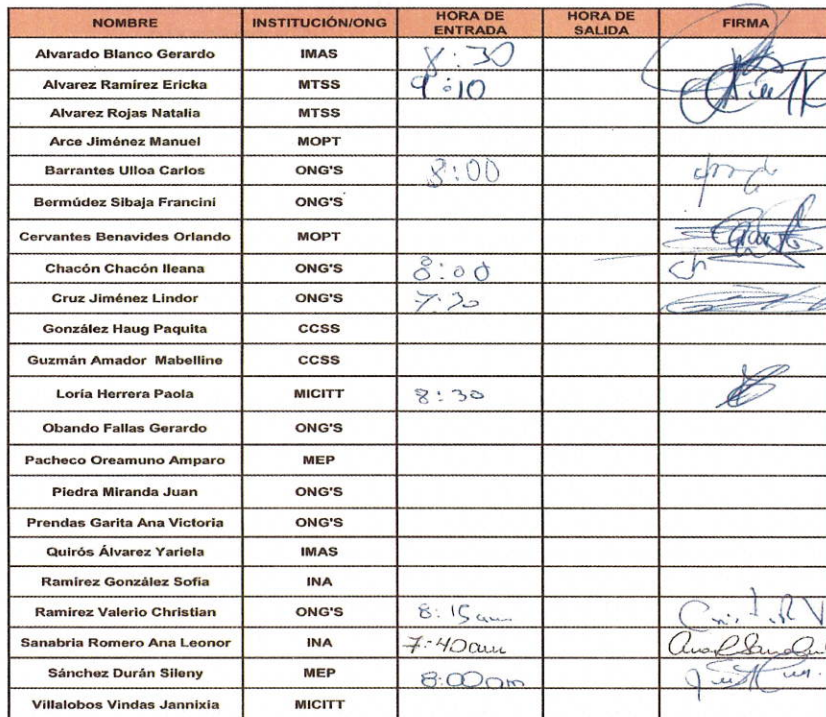 NOMBRE INSTITUCIÓN/ONG HORA DE ENTRADA HORA DE SALIDA FIRMA
Alvarado Blanco Gerardo IMAS 8:30
Alvarez Ramírez Ericka MTSS 9:10
Alvarez Rojas Natalia MTSS
Arce Jiménez Manuel MOPT
Barrantes Ulloa Carlos ONG'S 8:00
Bermúdez Sibaja Francini ONG'S
Cervantes Benavides Orlando MOPT
Chacón Chacón Ileana ONG'S 8:00 Ch
Cruz Jiménez Lindor ONG'S 7:30
González Haug Paquita CCSS
Guzmán Amador Mabelline CCSS
Loría Herrera Paola MICITT 8:30
Obando Fallas Gerardo ONG'S
Pacheco Oreamuno Amparo MEP
Piedra Miranda Juan ONG'S
Prendas Garita Ana Victoria ONG'S
Quirós Álvarez Yariela IMAS
Ramírez González Sofía INA
Ramírez Valerio Christian ONG'S 8:15am
Sanabria Romero Ana Leonor INA 7:40am
Sánchez Durán Sileny MEP 8:00am
Villalobos Vindas Jannixia MICITT